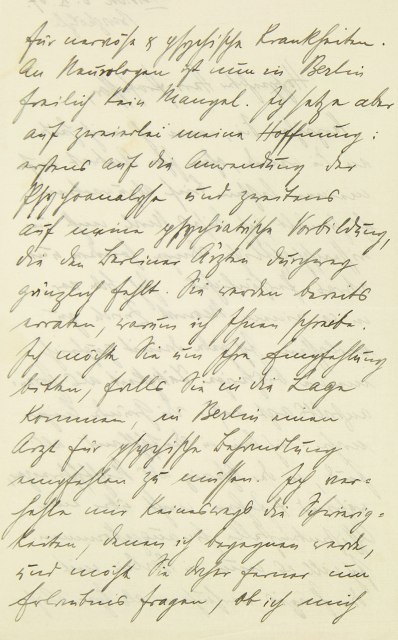 für nervöse & psychische Krankheiten.
An Neurologen ist nun in Berlin
freilich kein Mangel. Ich setze aber
auf zweierlei meine Hoffnung:
erstens auf die Anwendung der
Psychoanalyse und zweitens
auf meine psychiatrische Vorbildung,
die den Berliner Ärzten durchweg
gänzlich fehlt. Sie werden bereits
erraten, warum ich Ihnen schreibe.
Ich möchte Sie um Ihre Empfehlung
bitten, falls Sie in die Lage
kommen, in Berlin einen
Arzt für psychische Behandlung
empfehlen zu müssen. Ich ver=
hehle mir keineswegs die Schwierig=
keiten, denen ich begegnen werde,
und möchte Sie daher ferner um
Erlaubnis fragen, ob ich mich